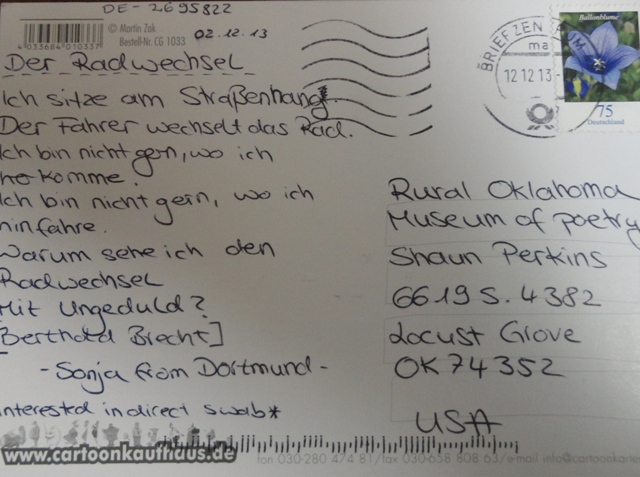 DE-2695822
© Martin Zak
Bestell-Nr. CG 1033
4033684010337
02.12.13
Der Radwechsel
Ich sitze am Straßenhang.
Der Fahrer wechselt das Rad.
Ich bin nicht gern, wo ich
herkomme.
Ich bin nicht gern, wo ich
hinfahre.
Warum sehe ich den
Radwechsel
Mit Ungeduld?
[Berthold Brecht]
- Sonja from Dortmund -
interested in direct swab*
www.cartoonkaufhaus.de
BRIEFZEN
ma
12.12.13-
Ballonblume
75
Deutschland
Rural Oklahoma
Museum of poetry
Shaun Perkins
6619 S. 4382
Locust Grove
OK 74352
USA
fon 030-280 474 81/fax 030-658 808 63/e-mail info@cartoonkarten